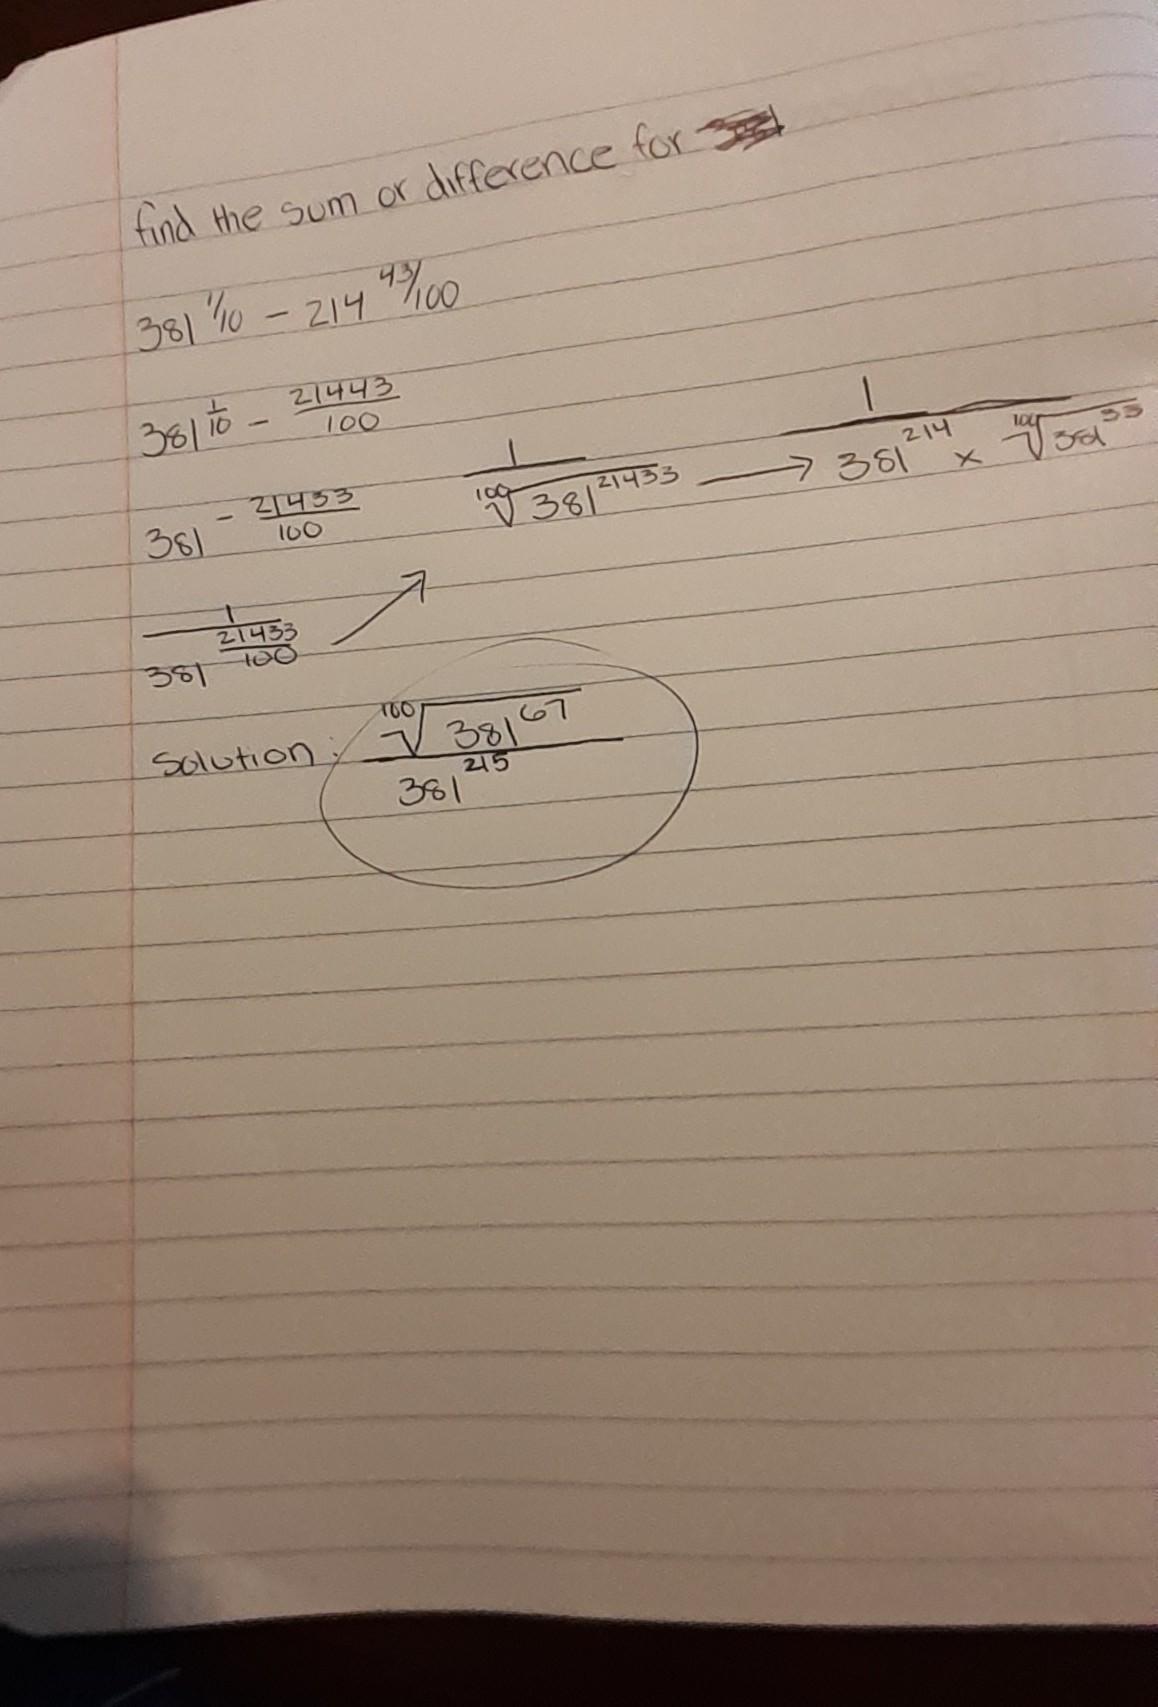 find the sum or difference for
381 1/10 - 214 43/100
381 1/10 - 21443/100
381 - 21433/100
1/381 21433/100
1/100√381 21433 → 1/381 214 x 100√381 33
Solution: 100√381 67/381 215